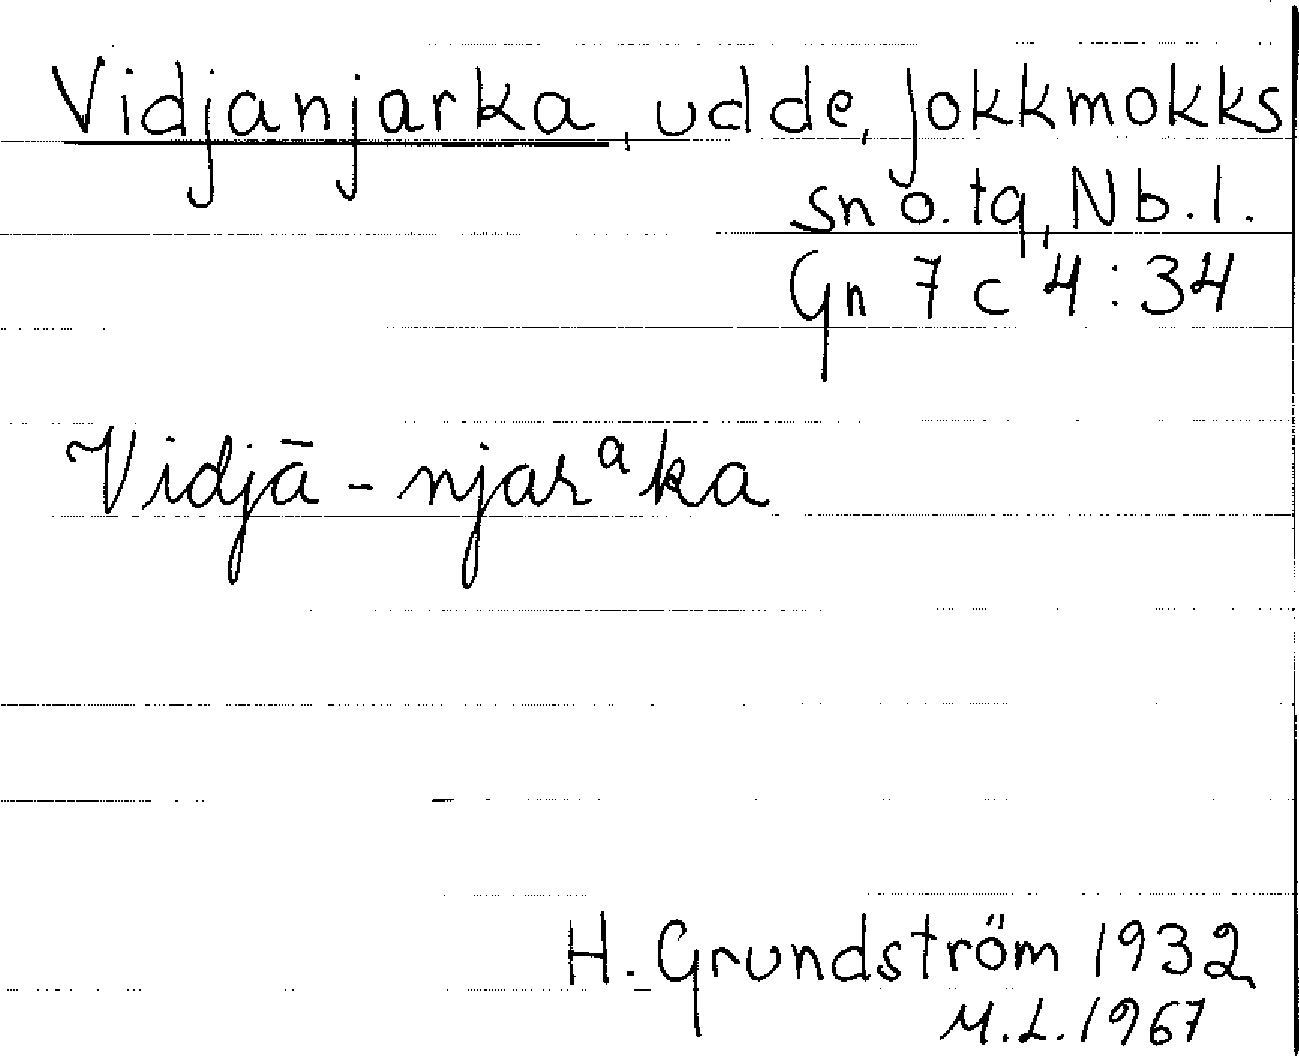 Vidjanjarka, udde, Jokkmokks
sn o. tg, Nb. l.
Gn 7 c 4:34
Vidjā-njarᵃka
H. Grundström 1932
M.L. 1967